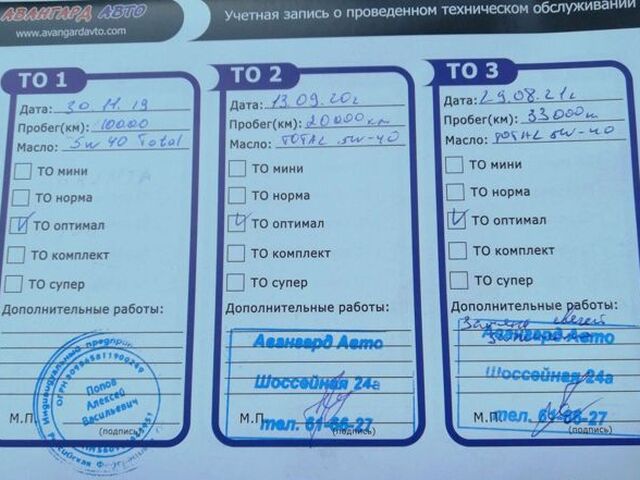 АВАНГАРД АВТО
www.avangardavto.com
Учетная запись о проведенном техническом обслуживании
ТО 1
Дата: 30.11.19
Пробег(км): 10000
Масло: 5w40 Total
ТО мини
ТО норма
ТО оптимал
ТО комплект
ТО супер
Дополнительные работы:
Индивидуальный предприн
ОГРН 309965811900249
Попов
Алексей
Васильевич
Российская Федерация
М.П.
(подпись)
ТО 2
Дата: 13.09.20г
Пробег(км): 20000км
Масло: TOTAL 5W-40
ТО мини
ТО норма
ТО оптимал
ТО комплект
ТО супер
Дополнительные работы:
Авангард Авто
Шоссейная 24а
М.П.
тел. 61-66-27
(подпись)
ТО 3
Дата: 29.08.21г
Пробег(км): 33000км
Масло: TOTAL 5W-40
ТО мини
ТО норма
ТО оптимал
ТО комплект
ТО супер
Дополнительные работы:
Замена свечей
Авангард Авто
Шоссейная 24а
М.П.
тел. 61-66-27
(подпись)